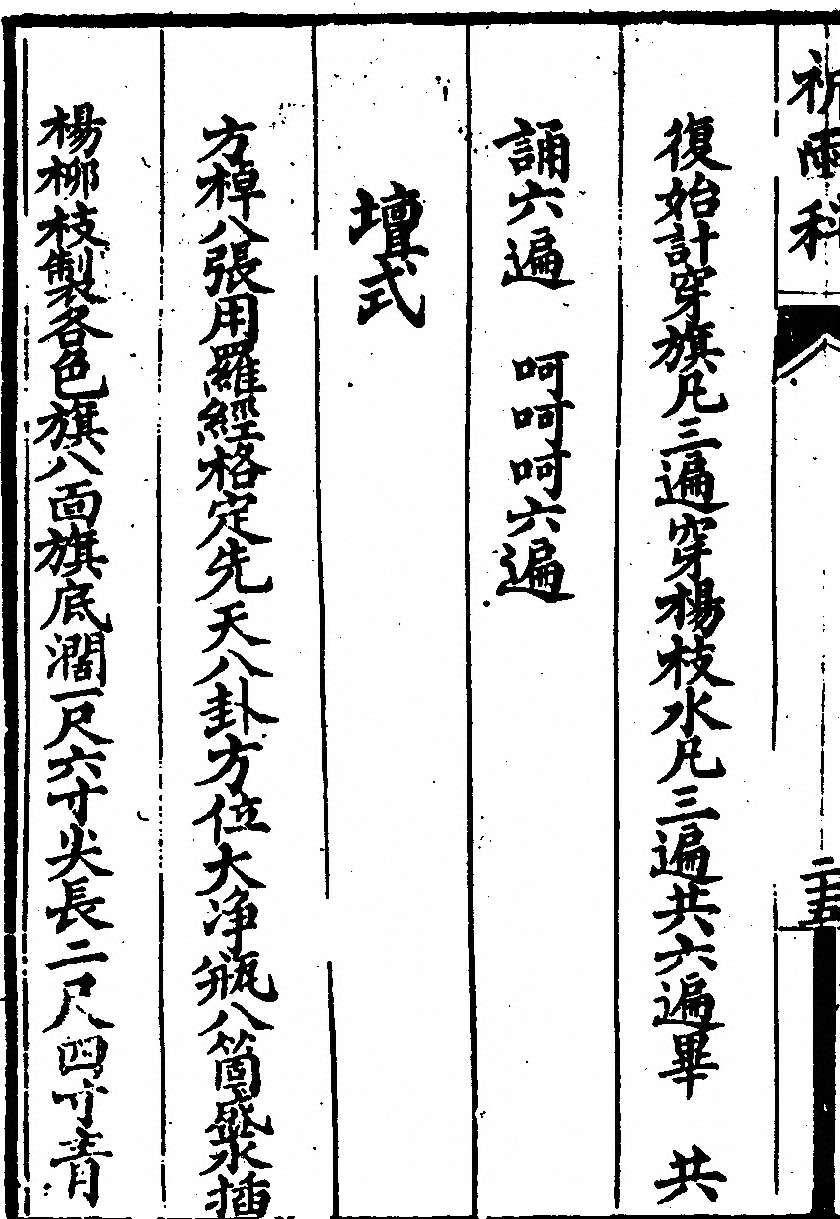 祈雨科
二十五
復始計穿旗凡三遍穿楊枝水凡三遍共六遍畢　共
誦六遍　呵呵呵六遍
壇式
方棹八張用羅經格定先天八卦方位大净瓶八箇盛水插
楊柳枝製各色旗八面旗底濶一尺六寸尖長二尺四寸青